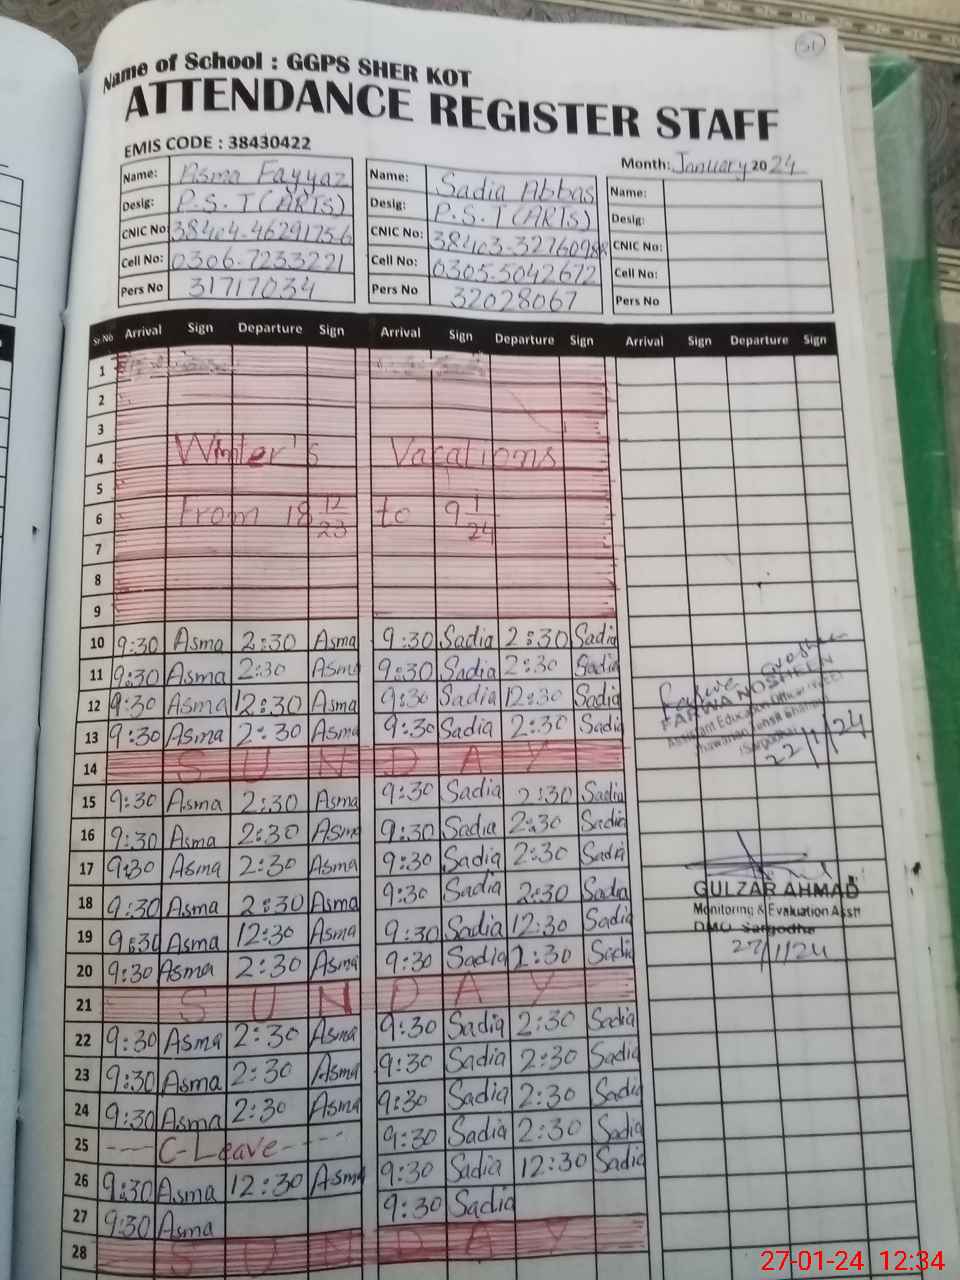 51
Name of School : GGPS SHER KOT
ATTENDANCE REGISTER STAFF
EMIS CODE : 38430422
Month: January 2024
Name: Asma Fayyaz Name: Sadia Abbas Name:
Desig: P.S.T(ARTS) Desig: P.S.T(ARTS) Desig:
CNIC No: 38404-4629175-6 CNIC No: CNIC No:
Cell No: 0306-7233221 Cell No: 0305-5042672 Cell No:
Pers No 31717034 Pers No 32028067 Pers No
Sr.No Arrival Sign Departure Sign Arrival Sign Departure Sign Arrival Sign Departure Sign
1
2
3
4 Winter's Vacations
5
6 From 18 12/23 to 9 1/24
7
8
9
10 9:30 Asma 2:30 Asma 9:30 Sadia 2:30 Sadia
11 9:30 Asma 2:30 Asma 9:30 Sadia 2:30 Sadia
12 9:30 Asma 12:30 Asma 9:30 Sadia 12:30 Sadia
13 9:30 Asma 2:30 Asma 9:30 Sadia 2:30 Sadia
14 SUNDAY
15 9:30 Asma 2:30 Asma 9:30 Sadia 2:30 Sadia
16 9:30 Asma 2:30 Asma 9:30 Sadia 2:30 Sadia
17 9:30 Asma 2:30 Asma 9:30 Sadia 2:30 Sadia
18 9:30 Asma 2:30 Asma 9:30 Sadia 2:30 Sadia
19 9:30 Asma 12:30 Asma 9:30 Sadia 12:30 Sadia
20 9:30 Asma 2:30 Asma 9:30 Sadia 2:30 Sadia
21 SUNDAY
22 9:30 Asma 2:30 Asma 9:30 Sadia 2:30 Sadia
23 9:30 Asma 2:30 Asma 9:30 Sadia 2:30 Sadia
24 9:30 Asma 2:30 Asma 9:30 Sadia 2:30 Sadia
25 C-Leave 9:30 Sadia 2:30 Sadia
26 9:30 Asma 12:30 Asma 9:30 Sadia 12:30 Sadia
27 9:30 Asma 9:30 Sadia
28 SUNDAY
FARWA NOSHEEN
Assistant Education Officer
22/1/24
GULZAR AHMAD
Monitoring & Evaluation Asstt
DMO Sargodha
27/1/24
27-01-24 12:34